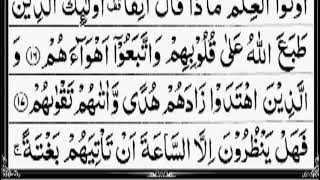 اُوتُوا الۡعِلۡمَ مَاذَا قَالَ اٰنِفًا اُولٰٓئِكَ الَّذِيۡنَ
طَبَعَ اللّٰهُ عَلٰى قُلُوۡبِهِمۡ وَاتَّبَعُوۡۤا اَهۡوَآءَهُمۡ ﴿۱۶﴾ وَ
الَّذِيۡنَ اهۡتَدَوۡا زَادَهُمۡ هُدًى وَّاٰتٰٮهُمۡ تَقۡوٰٮهُمۡ ﴿۱۷﴾
فَهَلۡ يَنۡظُرُوۡنَ اِلَّا السَّاعَةَ اَنۡ تَاۡتِيَهُمۡ بَغۡتَةً ۚ